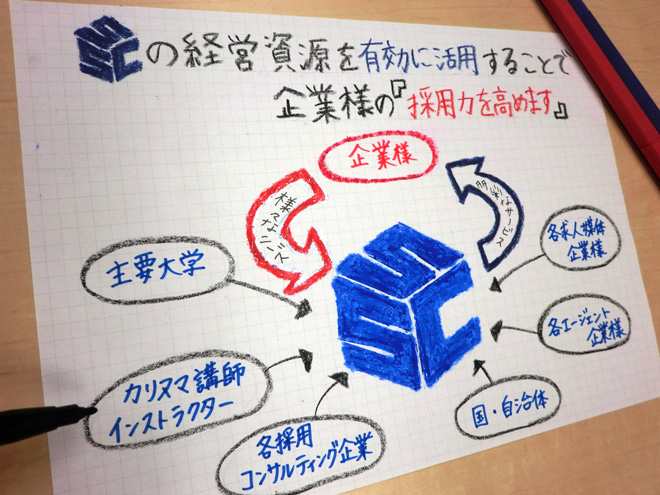 SSCの経営資源を有効に活用することで
企業様の『採用力を高めます』
企業様
様々なニーズ
最適なサービス
主要大学
各求人媒体
企業様
SSC
各エージェント
企業様
カリスマ講師
インストラクター
国・自治体
各採用
コンサルティング企業